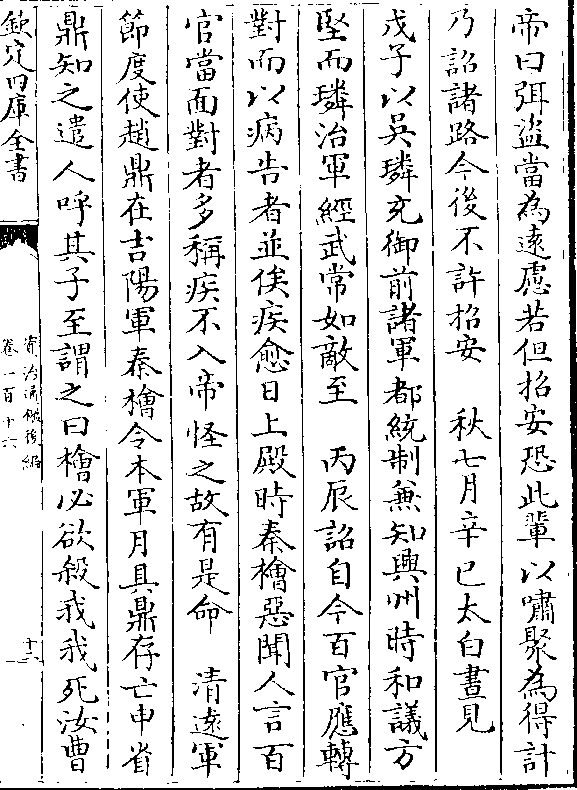 帝曰弭盜當為遠慮若但招安恐此輩以嘯聚為得計
乃詔諸路今後不許招安　秋七月辛巳太白晝見
戊子以吳璘充御前諸軍都統制兼知興州時和議方
堅而璘治軍經武常如敵至　丙辰詔自今百官應轉
對而以病告者並俟疾愈日上殿時秦檜惡聞人言百
官當面對者多稱疾不入帝怪之故有是命　清遠軍
節度使趙鼎在吉陽軍秦檜令本軍月具鼎存亡申省
鼎知之遣人呼其子至謂之曰檜必欲殺我我死汝曹
欽定四庫全書
資治通鑑後編
卷一百十六
十二